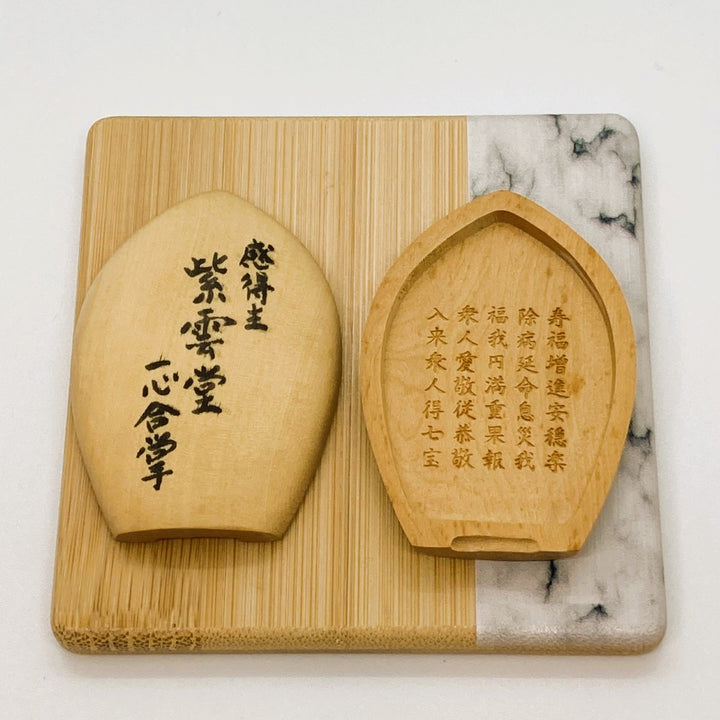 感得主
紫雲堂
一心合掌
寿福増進安穏楽
除病延命息災我
福我円満重果報
衆人愛敬従恭敬
入来衆人得七宝